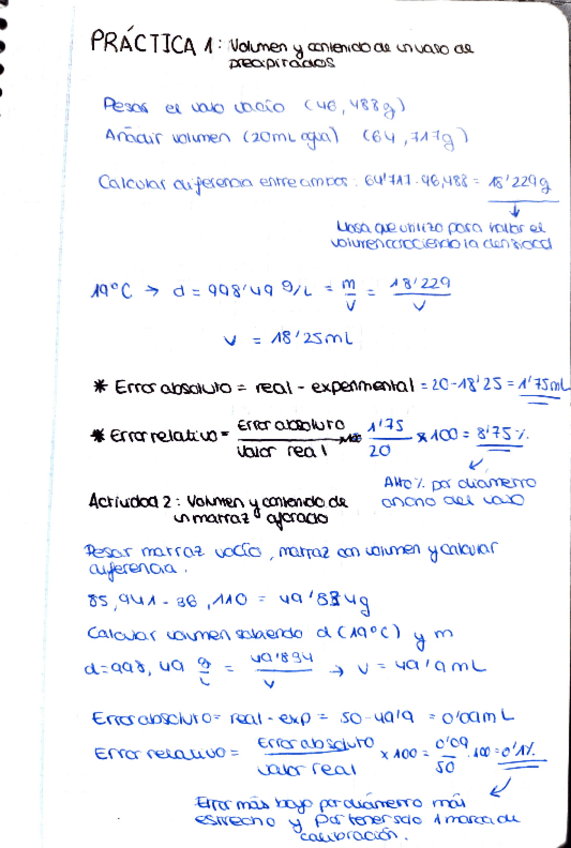 PRÁCTICA 1: Volumen y contenido de un vaso de
precipitados
Pesar el vaso vacío (46,488g)
Añadir volumen (20mL agua) (64,717g)
Calcular diferencia entre ambos: 64'717-46,488= 18'229g
Masa que utilizo para hallar el
volumen conociendo la densidad
19°C → d = 998'49 g/L = m/v = 18'229/v
v = 18'25mL
* Error absoluto = real - experimental = 20-18'25 = 1'75mL
* Error relativo = Error absoluto/valor real = 1'75/20 × 100 = 8'75%
Alto % por diámetro
ancho del vaso
Actividad 2: Volumen y contenido de
un matraz aforado
Pesar matraz vacío, matraz con volumen y calcular
diferencia.
85,941-36,110 = 49'834g
Calcular volumen sabiendo d (19°C) y m
d=998,49 g/L = 49'834/v → v = 49'9mL
Error absoluto = real - exp = 50-49'9 = 0'09mL
Error relativo = Error absoluto/valor real × 100 = 0'09/50 · 100 = 0'1%
Error más bajo por diámetro más
estrecho y por tener solo 1 marca de
calibración.